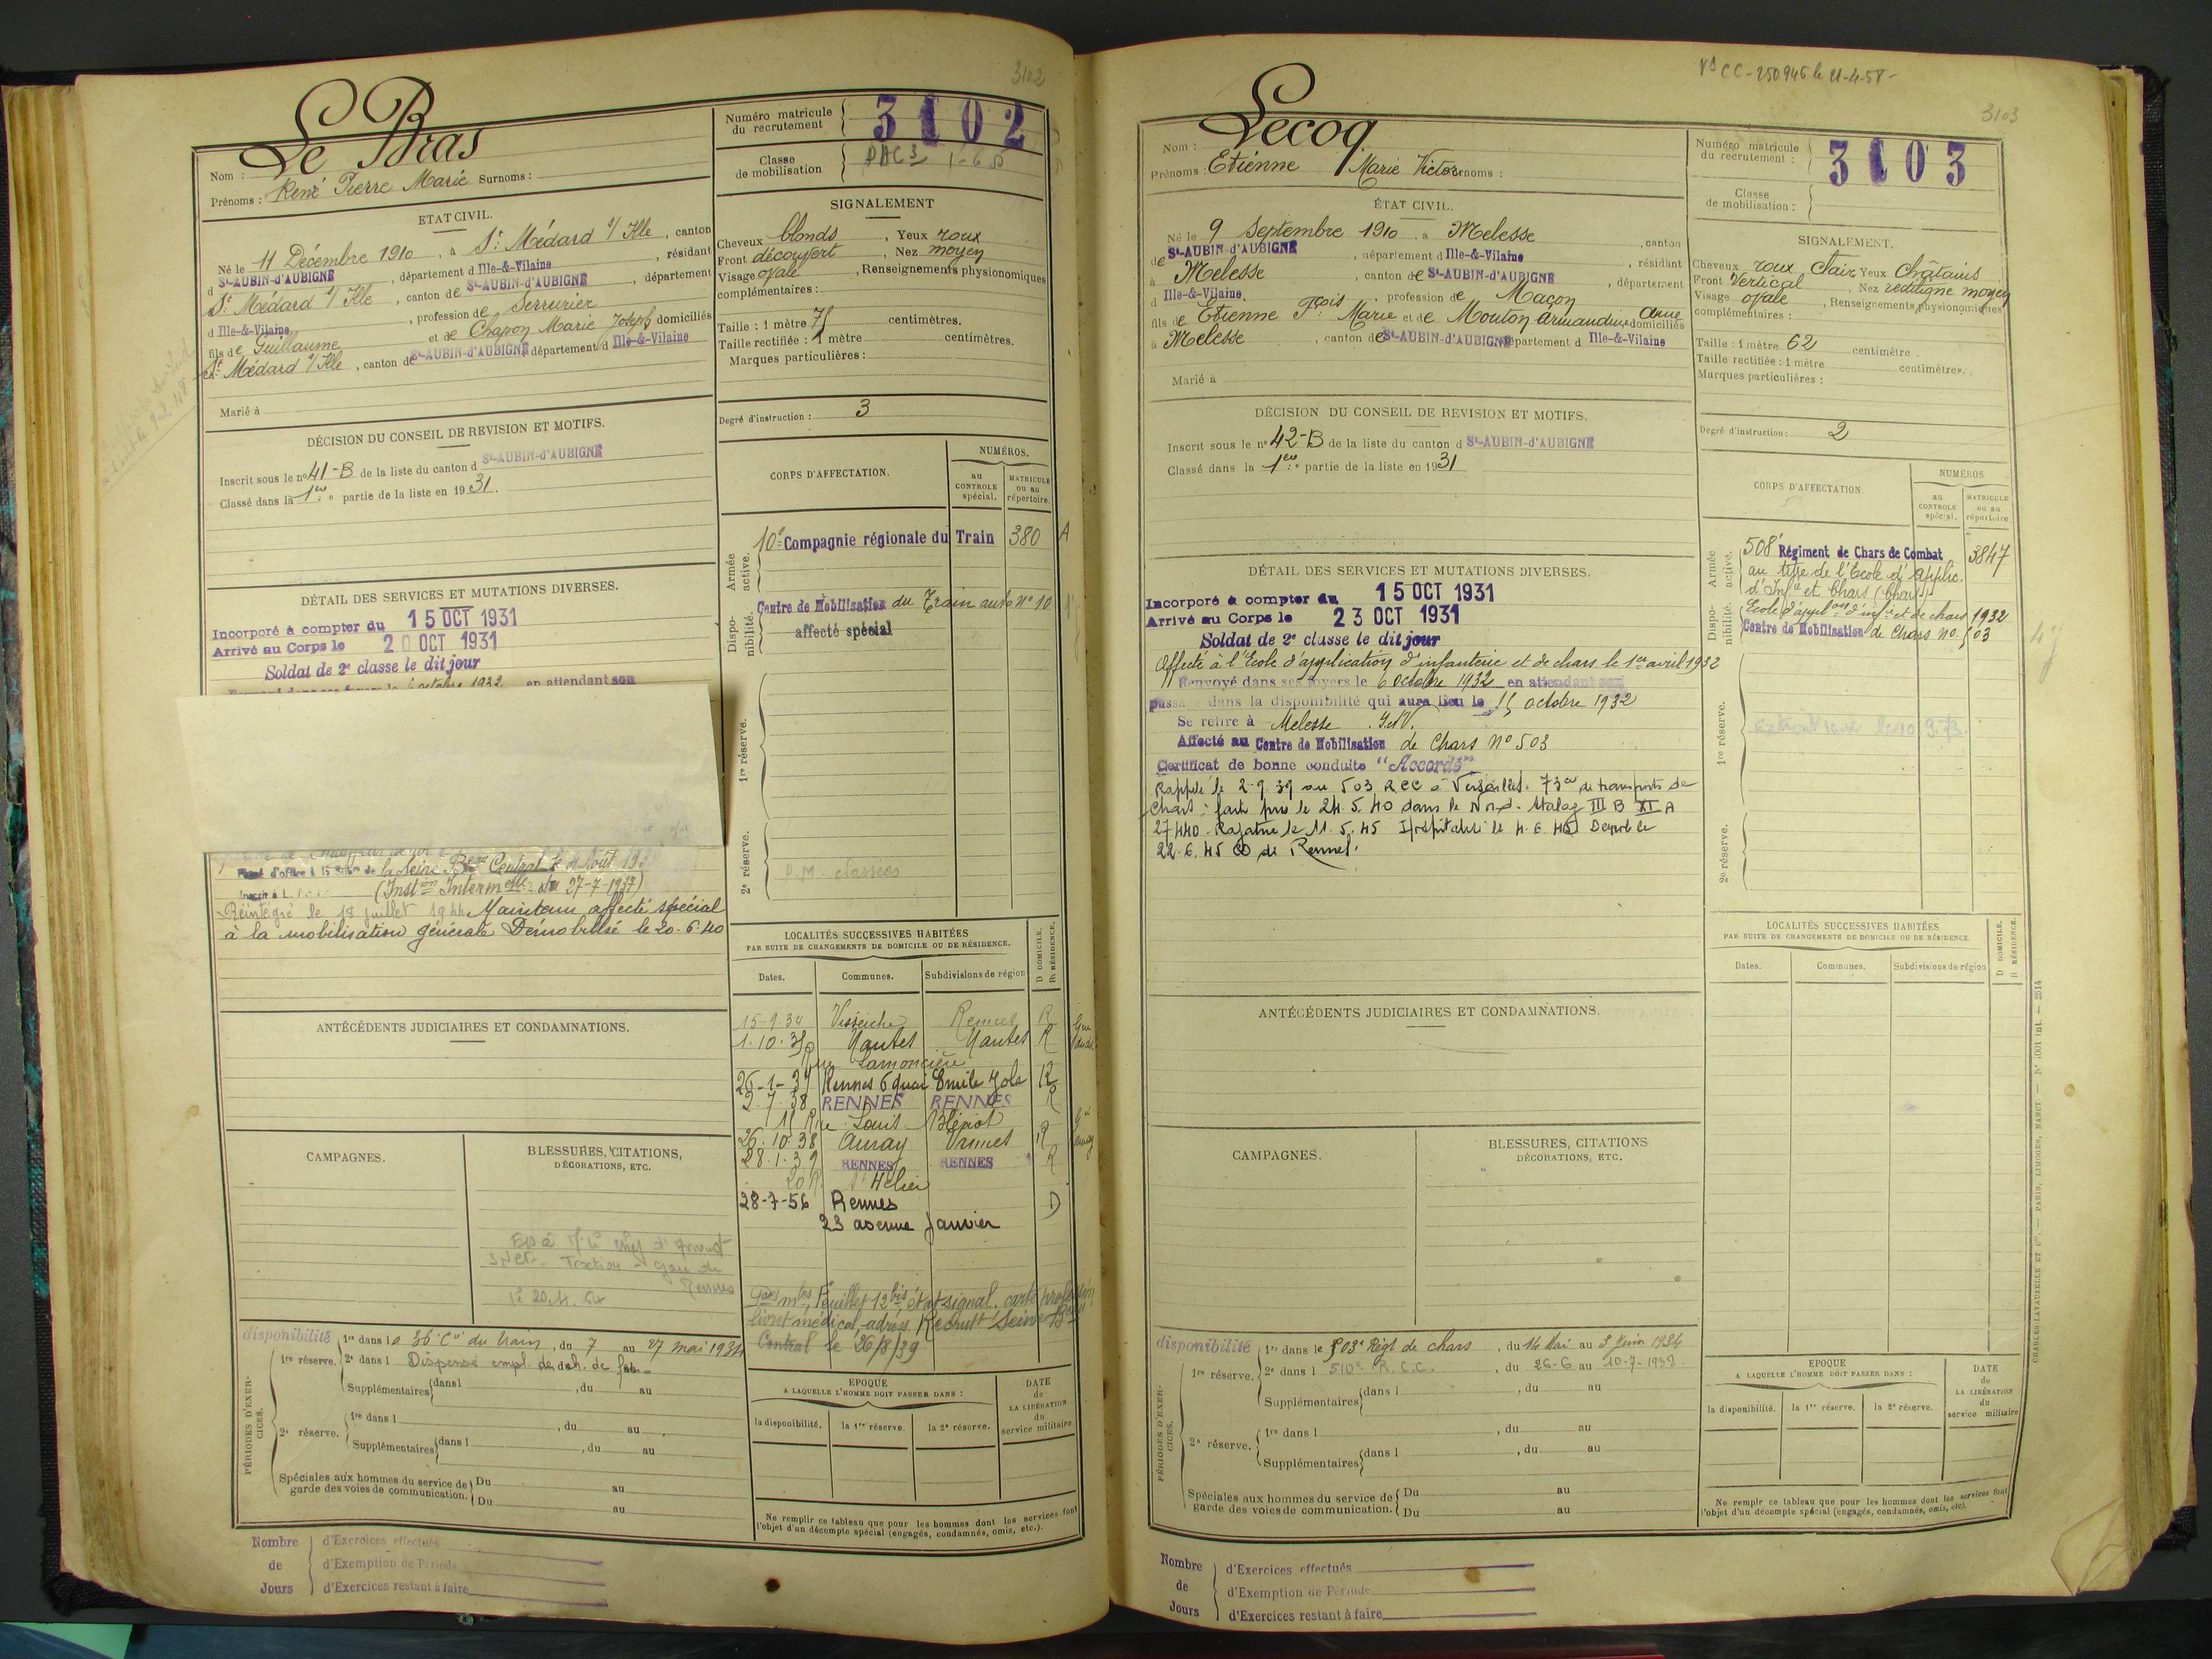 3102
Le Bras
Nom :
Prénoms : René Pierre Marie Surnoms :
Numéro matricule du recrutement 3102
Classe de mobilisation
ETAT CIVIL.
Né le 11 Décembre 1910, à St Médard s/ Ille, canton
d St-AUBIN-d'AUBIGNÉ, département d Ille-&-Vilaine, résidant
St Médard s/ Ille, canton de St-AUBIN-d'AUBIGNÉ, département
d Ille-&-Vilaine, profession de Serrurier
fils de Guillaume et de Chapon Marie Joseph domiciliés
St Médard s/ Ille, canton de St-AUBIN-d'AUBIGNÉ département d Ille-&-Vilaine
Marié à
SIGNALEMENT
Cheveux blonds, Yeux roux
Front découvert, Nez moyen
Visage ovale, Renseignements physionomiques
complémentaires :
Taille : 1 mètre 71 centimètres.
Taille rectifiée : 1 mètre centimètres.
Marques particulières :
Degré d'instruction : 3
DÉCISION DU CONSEIL DE REVISION ET MOTIFS.
Inscrit sous le no 41-B de la liste du canton d St-AUBIN-d'AUBIGNÉ
Classé dans la 1ère partie de la liste en 1931.
DÉTAIL DES SERVICES ET MUTATIONS DIVERSES.
Incorporé à compter du 15 OCT 1931
Arrivé au Corps le 20 OCT 1931
Soldat de 2e classe le dit jour
octobre 1932 en attendant son
la Seine Beau Central le Août
(Instion Intermelle du 27-7-1937)
Réintégré le 18 juillet 1944 Maintenu affecté spécial
à la mobilisation générale Démobilisé le 20-6-40
CORPS D'AFFECTATION.
NUMÉROS.
au CONTROLE spécial.
MATRICULE ou au répertoire.
Armée active.
10e Compagnie régionale du Train 380 A
Disponibilité.
Centre de Mobilisation du Train auto No 10
affecté spécial
1re réserve.
2e réserve.
P.M. classées
LOCALITÉS SUCCESSIVES HABITÉES
PAR SUITE DE CHANGEMENTS DE DOMICILE OU DE RÉSIDENCE.
D DOMICILE. R RÉSIDENCE.
Dates. Communes. Subdivisions de région
15-9-34 Visseiche Rennes R
1-10-35 Nantes Nantes R
Rue Lamoricière
26-1-37 Rennes 6 quai Emile Zola R
2-7-38 RENNES RENNES R
11 Rue Louis Blériot
26-10-38 Auray Vannes R
28-1-39 RENNES RENNES R
20 R St Hélier
28-7-56 Rennes D
23 avenue Janvier
feuillet 12bis état signal. carte
livret médical, adress. Recrutt Seine Beau
Central le 26/8/39
ANTÉCÉDENTS JUDICIAIRES ET CONDAMNATIONS.
CAMPAGNES.
BLESSURES, CITATIONS,
DÉCORATIONS, ETC.
PÉRIODES D'EXERCICES.
disponibilité
1re réserve. 1re dans le 36e Cie du train, du 7 au 27 mai 1934
2e dans l Dispensé
Supplémentaires dans l, du au
2e réserve. 1re dans l, du au
Supplémentaires dans l, du au
Spéciales aux hommes du service de garde des voies de communication. Du au
Du au
EPOQUE
A LAQUELLE L'HOMME DOIT PASSER DANS :
la disponibilité. la 1re réserve. la 2e réserve.
DATE de LA LIBÉRATION du service militaire
Ne remplir ce tableau que pour les hommes dont les services font
l'objet d'un décompte spécial (engagés, condamnés, omis, etc.).
Nombre de Jours
d'Exercices effectués
d'Exemption de Période
d'Exercices restant à faire
CC-250946 le 21-4-58-
3103
Lecoq
Nom :
Prénoms : Etienne Marie Victor
Numéro matricule du recrutement : 3103
Classe de mobilisation :
ÉTAT CIVIL.
Né le 9 Septembre 1910, à Melesse, canton
de St-AUBIN-d'AUBIGNÉ, département d Ille-&-Vilaine, résidant
à Melesse, canton de St-AUBIN-d'AUBIGNÉ, département
d Ille-&-Vilaine, profession de Maçon
fils de Etienne Fçois Marie et de Mouton Armandine Anne domiciliés
à Melesse, canton de St-AUBIN-d'AUBIGNÉ département d Ille-&-Vilaine
Marié à
SIGNALEMENT.
Cheveux roux clair Yeux châtains
Front Vertical, Nez rectiligne moyen
Visage ovale, Renseignements physionomiques
complémentaires :
Taille : 1 mètre 62 centimètre.
Taille rectifiée : 1 mètre centimètres.
Marques particulières :
Degré d'instruction : 2
DÉCISION DU CONSEIL DE REVISION ET MOTIFS.
Inscrit sous le no 42-B de la liste du canton d St-AUBIN-d'AUBIGNÉ
Classé dans la 1ère partie de la liste en 1931
DÉTAIL DES SERVICES ET MUTATIONS DIVERSES.
Incorporé à compter du 15 OCT 1931
Arrivé au Corps le 23 OCT 1931
Soldat de 2e classe le dit jour
Affecté à l'Ecole d'application d'infanterie et de chars le 1er avril 1932
Renvoyé dans ses foyers le 6 octobre 1932 en attendant son
passa dans la disponibilité qui aura lieu le 15 octobre 1932
Se retire à Melesse I.&V.
Affecté au Centre de Mobilisation de Chars No 503
Certificat de bonne conduite "Accordé"
Rappelé le 2-9-39 au 503 RCC à Versailles. 73e Cie de transports de
Chars : fait pris le 24.5.40 dans le Nord. Stalag III B XI A
27440. Rapatrié le 11.5.45 Hospitalisé le 4.6.45 Démob le
22.6.45 de Rennes.
CORPS D'AFFECTATION
NUMÉROS
au CONTROLE spécial.
MATRICULE ou au répertoire
Armée active.
508e Régiment de Chars de Combat 3847
au titre de l'Ecole d'Applic.
d'Infie et Chars (Chars)
Disponibilité.
Ecole d'applon d'infie et de chars 1932
Centre de Mobilisation de Chars No 503
1re réserve.
2e réserve.
LOCALITÉS SUCCESSIVES HABITÉES
PAR SUITE DE CHANGEMENTS DE DOMICILE OU DE RÉSIDENCE.
D DOMICILE. R RÉSIDENCE.
Dates. Communes. Subdivisions de région
ANTÉCÉDENTS JUDICIAIRES ET CONDAMNATIONS.
CAMPAGNES.
BLESSURES, CITATIONS
DÉCORATIONS, ETC.
PÉRIODES D'EXERCICES.
disponibilité
1re réserve. 1re dans le 503e Régt de chars, du 14 Mai au 3 Juin 1934
2e dans l 510e R.C.C., du 26-6 au 10-7-1938.
Supplémentaires dans l, du au
2e réserve. 1re dans l, du au
Supplémentaires dans l, du au
Spéciales aux hommes du service de garde des voies de communication. Du au
Du au
EPOQUE
A LAQUELLE L'HOMME DOIT PASSER DANS :
la disponibilité. la 1re réserve. la 2e réserve.
DATE de LA LIBÉRATION du service militaire
Ne remplr ce tableau que pour les hommes dont les services font
l'objet d'un décompte spécial (engagés, condamnés, omis, etc).
Nombre de Jours
d'Exercices effectués
d'Exemption de Période
d'Exercices restant à faire
CHARLES-LAVAUZELLE ET Cie. — PARIS, LIMOGES, NANCY